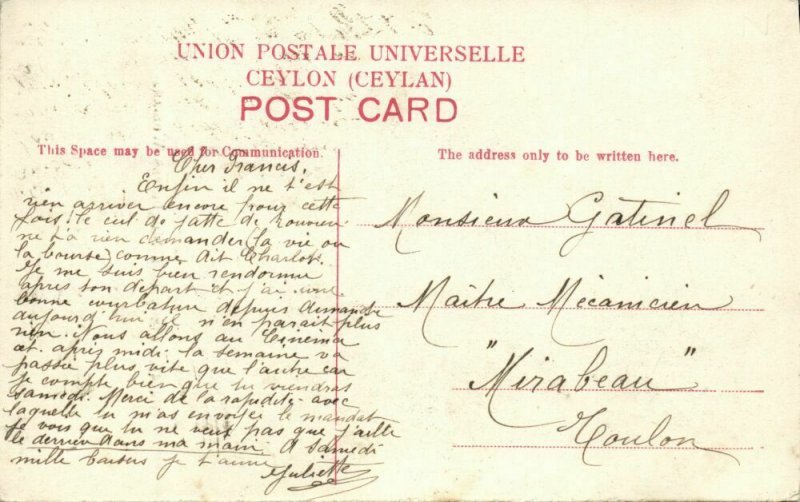 UNION POSTALE UNIVERSELLE
CEYLON (CEYLAN)
POST CARD
This Space may be used for Communication.
The address only to be written here.
Cher Francis,
Enfin il ne t'est
rien arriver encore pour cette
fois, le cul de jatte de
ne t'a rien demander (la vie ou
la bourse) comme dit Charlot.
Je me suis bien rendormie
après ton départ et j'ai une
bonne courbature depuis dimanche
aujourd'hui ce n'en parait plus
rien. Nous allons au Cinema
cet après midi. la semaine va
passée plus vite que l'autre car
je compte bien que tu viendras
samedi. Merci de la rapidité avec
laquelle tu m'as envoyer le mandat
je vois que tu ne veut pas que j'aille
le derrière dans ma main. A samedi
mille baisers je t'aime
Juliette
Monsieur Gatinel
Maître Mécanicien
"Mirabeau"
Toulon